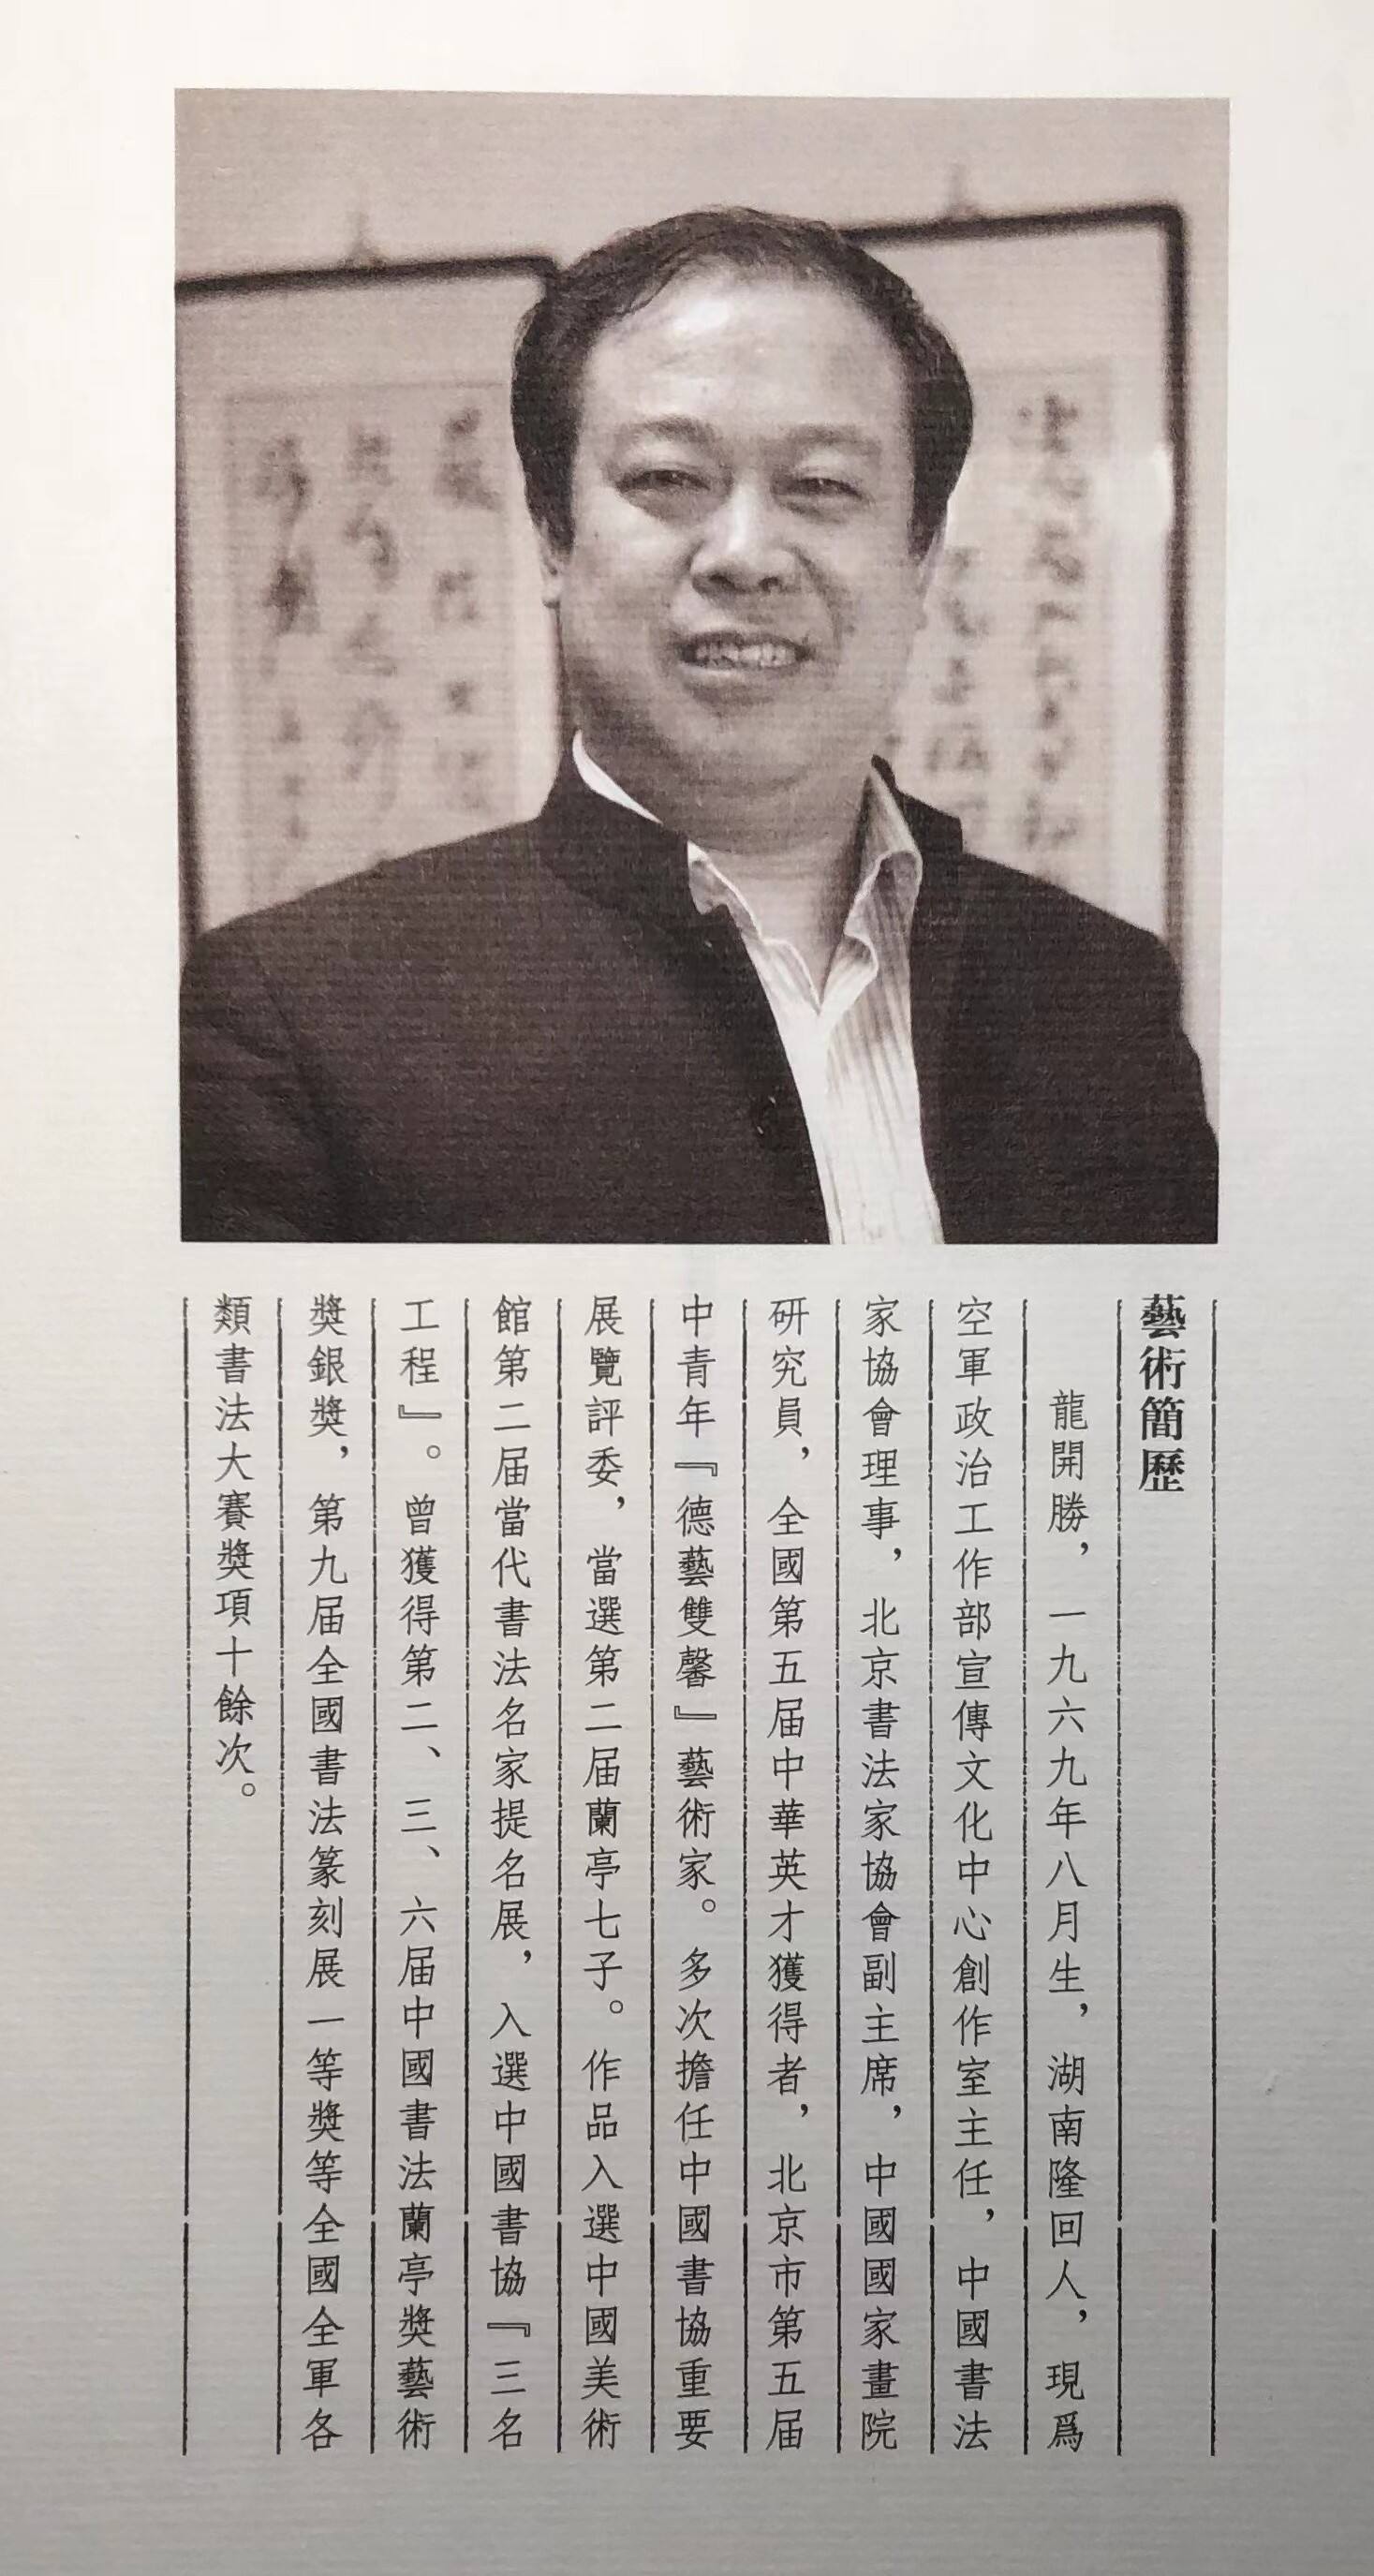 藝術簡歷
龍開勝，一九六九年八月生，湖南隆回人，現爲
空軍政治工作部宣傳文化中心創作室主任，中國書法
家協會理事，北京書法家協會副主席，中國國家畫院
研究員，全國第五届中華英才獲得者，北京市第五届
中青年『德藝雙馨』藝術家。多次擔任中國書協重要
展覽評委，當選第二届蘭亭七子。作品入選中國美術
館第二届當代書法名家提名展，入選中國書協『三名
工程』。曾獲得第二、三、六届中國書法蘭亭獎藝術
獎銀獎，第九届全國書法篆刻展一等獎等全國全軍各
類書法大賽獎項十餘次。